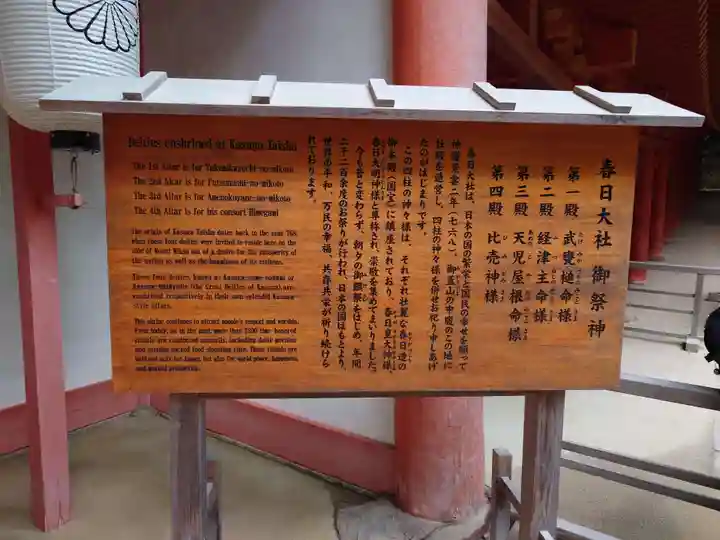 春日大社 御祭神
第一殿 武甕槌命様
第二殿 経津主命様
第三殿 天児屋根命様
第四殿 比売神様
春日大社は、日本の国の繁栄と国民の幸せを願って
神護景雲二年(七六八)、御蓋山の中腹のこの地に
社殿を造営し、四柱の神々様を併せお祀り申しあげ
たのがはじまりです。
この四柱の神々様は、それぞれ壮麗な春日造の
御本殿(国宝)に鎮座されており、春日皇大神様、
春日大明神様と尊称され、崇敬を集めてまいりました。
今も昔と変わらず、朝夕の御饌祭をはじめ、年間
二千二百余度のお祭りが行われ、日本の国はもとより、
世界の平和、万民の幸福、共存共栄が祈り続けら
れております。
Deities enshrined at Kasuga Taisha
The 1st Altar is for Takemikazuchi-no-mikoto
The 2nd Altar is for Futsunushi-no-mikoto
The 3rd Altar is for Amenokoyane-no-mikoto
The 4th Altar is for his consort Himegami
The origin of Kasuga Taisha dates back to the year 768
when these four deities were invited to reside here on the
side of Mount Mikasa out of a desire for the prosperity of
the nation as well as the happiness of its citizens.
These four deities, known as Kasuga-sume-ookami or
Kasuga-daimyojin (the Great Deities of Kasuga) are
enshrined respectively in their own splendid Kasuga-
style altars.
The shrine continues to attract people's respect and worship.
Even today, as in the past, more than 2200 time-honored
rituals are conducted annually, including daily morning
and evening sacred food offering rites. These rituals are